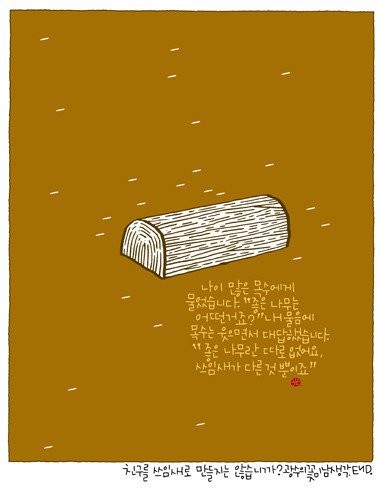 나이 많은 목수에게
물었습니다. "좋은 나무는
어떤거죠?" 내 물음에
목수는 웃으면서 대답했습니다.
"좋은 나무란 따로 없어요,
쓰임새가 다른 것 뿐이죠"
친구를 쓰임새로 만들지는 않습니까? 광수의꽃피남생각.